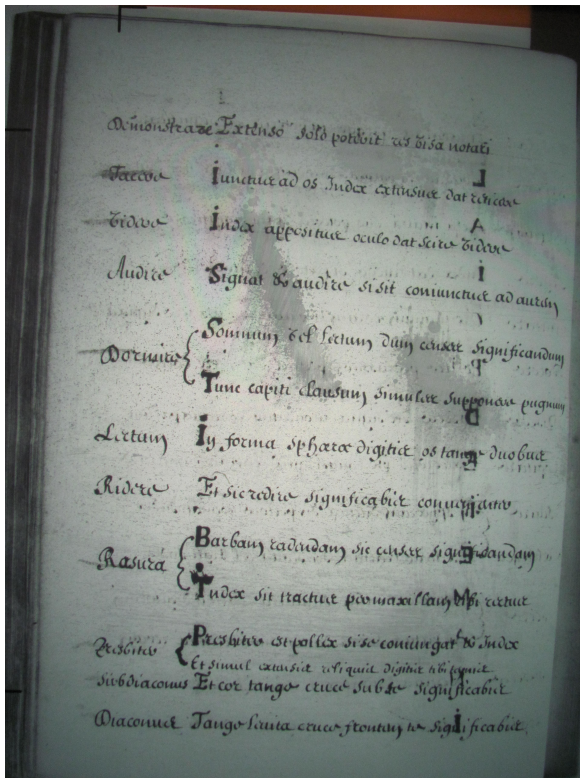 Demonstrare Extenso solo poterit res visa notari
Tacere Iunctus ad os Index extensus dat reticere
Videre Index appositus oculo dat scire videre
Audire Signat & audire si sit coniunctus ad aurem
Dormire Somnum vel lectum dum censes significandum
Tunc capiti clausum simules supponere pugnum
Lectum In forma sphaeræ digitis os tange duobus
Ridere Et sic ridere significabis
Rasura Barbam radendam sic censes significandam
Index sit tractus per maxillam
Presbiter Presbiter est pollex si se coniungat & Index
Et simul extensis reliquis digitis tibi
Subdiaconus Et cor tange cruce subde significabis
Diaconus Tange levita cruce frontem te significabis